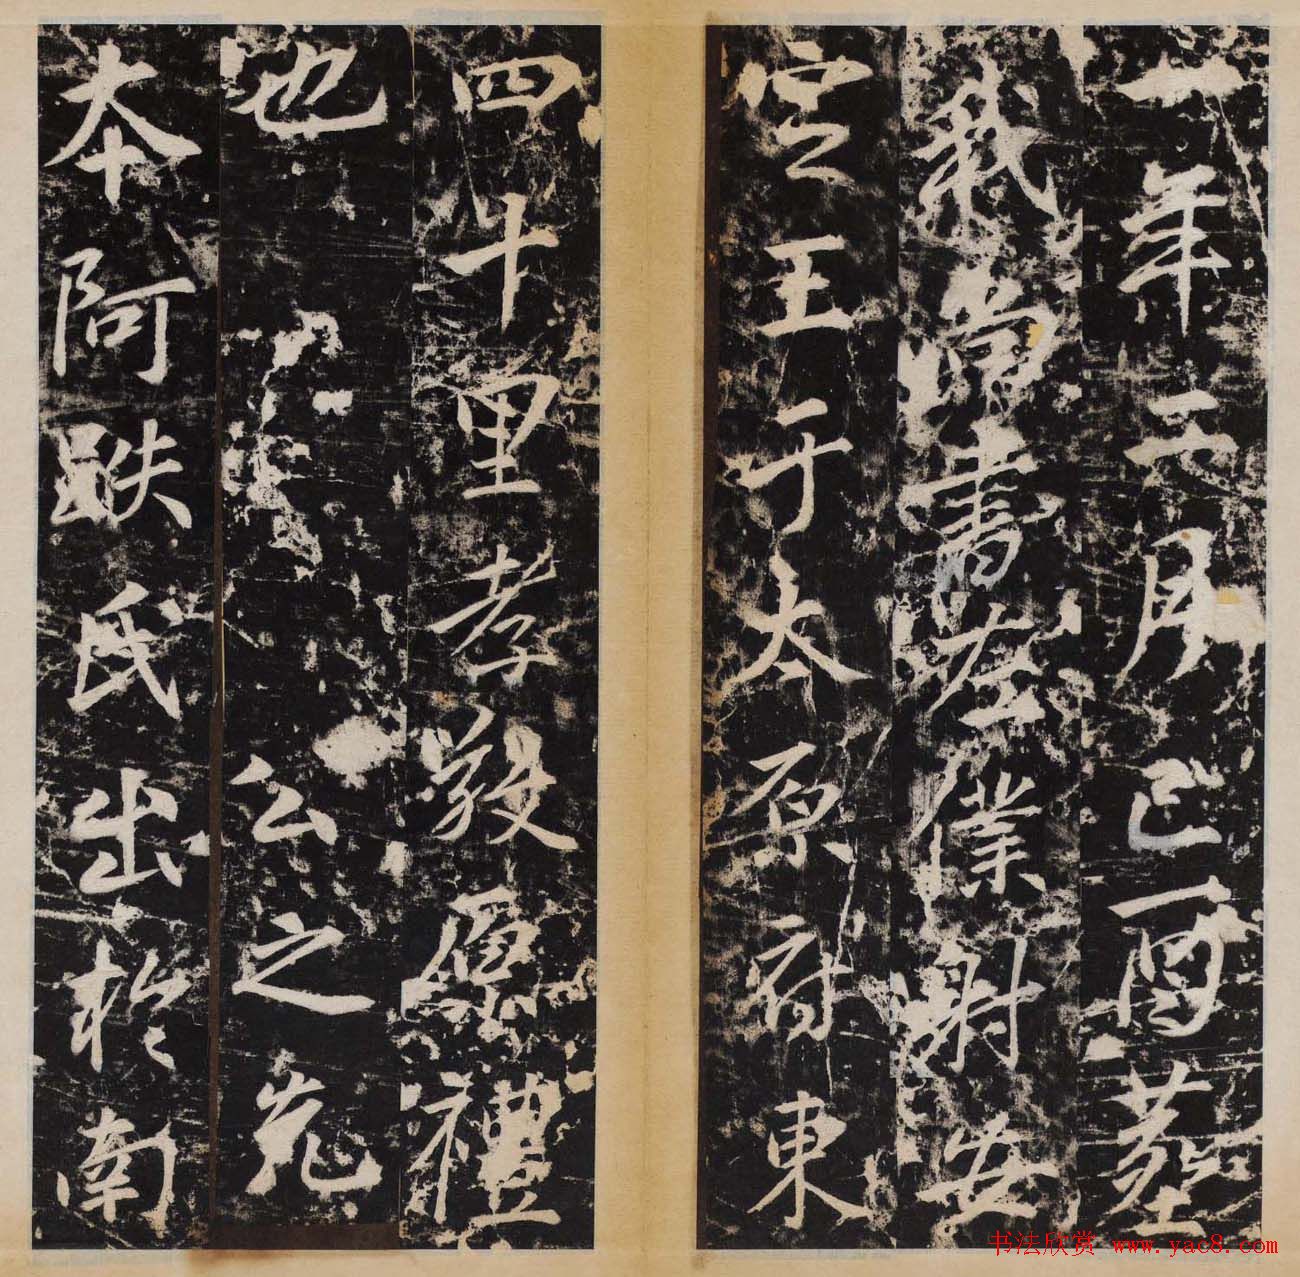 一年二月己酉塟
我尚書左僕射安
定王于太原府東
四十里孝敬原禮
也公之先
本阿跌氏出於南
书法欣赏 www.yac8.com